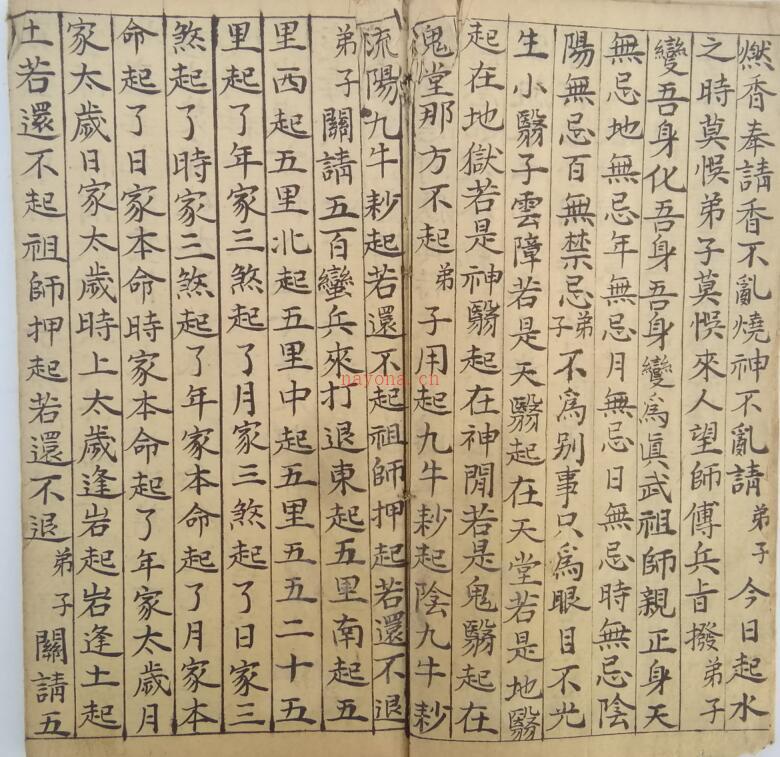 燃香奉請香不亂燒神不亂請弟子今日起水
之時莫悞弟子莫悞來人望師傅兵旨撥弟子
變吾身化吾身吾身變為眞武祖師親正身天
無忌地無忌年無忌月無忌日無忌時無忌陰
陽無忌百無禁忌弟子不為别事只為眼目不光
生小翳子雲障若是天翳起在天堂若是地翳
起在地獄若是神翳起在神閒若是鬼翳起在
鬼堂那方不起弟子用起九牛耖起陰九牛耖
流陽九牛耖起若還不起祖師押起若還不退
弟子關請五百蠻兵來打退東起五里南起五
里西起五里北起五里中起五里五五二十五
里起了年家三煞起了月家三煞起了日家三
煞起了時家三煞起了年家本命起了月家本
命起了日家本命時家本命起了年家太歲月
家太歲日家太歲時上太歲逢岩起岩逢土起
土若還不起祖師押起若還不退弟子關請五
nayona.cn